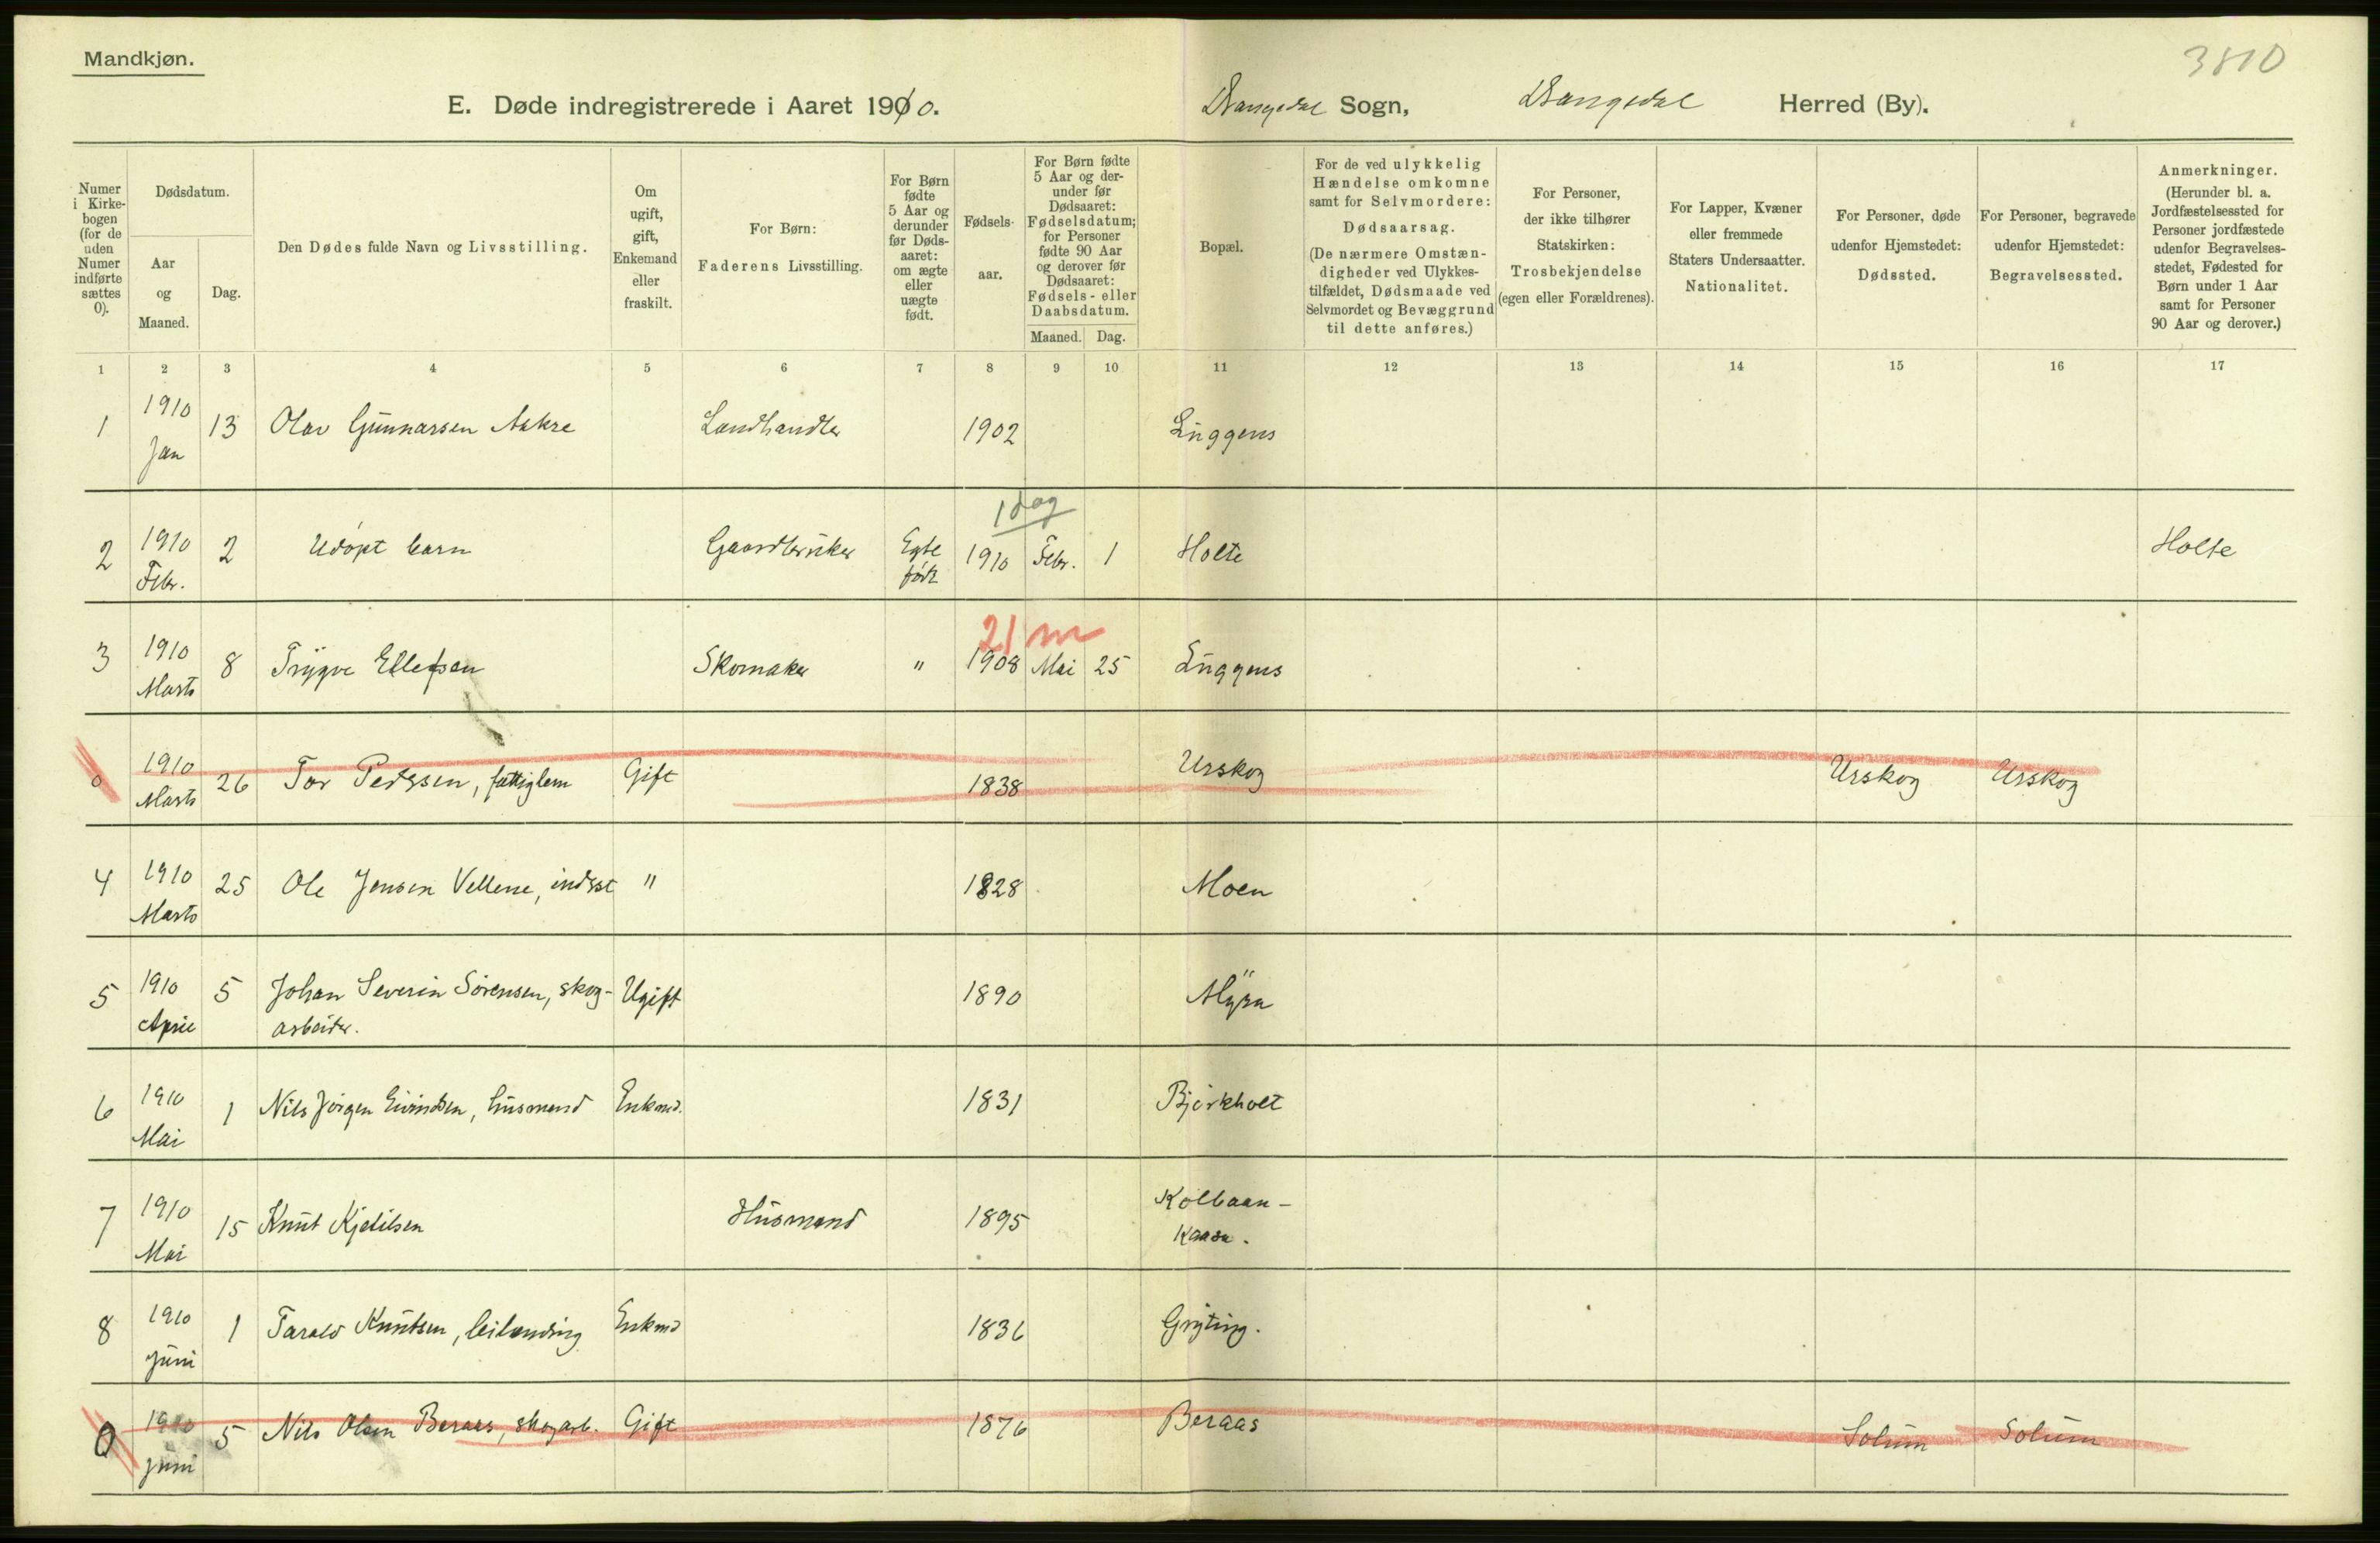 Mandkjøn.
3810
E. Døde indregistrerede i Aaret 1910.
Drangedal Sogn, Drangedal Herred (By).
Numer i Kirke-bogen (for de uden Numer indførte sættes 0).
Dødsdatum.
Aar og Maaned.
Dag.
Den Dødes fulde Navn og Livsstilling.
Om ugift, gift, Enkemand eller fraskilt.
For Børn: Faderens Livsstilling.
For Børn fødte 5 Aar og derunder før Døds-aaret: om ægte eller uægte født.
Fødsels-aar.
For Børn fødte 5 Aar og der-under før Dødsaaret: Fødselsdatum; for Personer fødte 90 Aar og derover før Dødsaaret: Fødsels- eller Daabsdatum.
Maaned. Dag.
Bopæl.
For de ved ulykkelig Hændelse omkomne samt for Selvmordere: Dødsaarsag. (De nærmere Omstæn-digheder ved Ulykkes-tilfældet, Dødsmaade ved Selvmordet og Bevæggrund til dette anføres.)
For Personer, der ikke tilhører Statskirken: Trosbekjendelse (egen eller Forældrenes).
For Lapper, Kvæner eller fremmede Staters Undersaatter. Nationalitet.
For Personer, døde udenfor Hjemstedet: Dødssted.
For Personer, begravede udenfor Hjemstedet: Begravelsessted.
Anmerkninger. (Herunder bl. a. Jordfæstelsessted for Personer jordfæstede udenfor Begravelses-stedet, Fødested for Børn under 1 Aar samt for Personer 90 Aar og derover.)
1 2 3 4 5 6 7 8 9 10 11 12 13 14 15 16 17
1 1910 Jan 13 Olav Gunnarsen Aakre Landhandler 1902 Luggens
1 dag
2 1910 Febr. 2 Udøpt barn Gaardbruker Egte født 1910 Febr. 1 Holte Holte
21 m
3 1910 Marts 8 Trygve Ellefsen Skomaker " 1908 Mai 25 Luggens
0 1910 Marts 26 Tor Pedersen, fattiglem Gift 1838 Urskog Urskog Urskog
4 1910 Marts 25 Ole Jensen Vellene, inderst " 1828 Moen
5 1910 April 5 Johan Severin Sørensen, skog- Ugift 1890 Myra
arbeider.
6 1910 Mai 1 Nils Jørgen Eivindsen, husmand Enkmd. 1831 Bjørkholt
7 1910 Mai 15 Knut Kjetilsen Husmand 1895 Kolbaan-
Kaasa.
8 1910 juni 1 Tarald Knutsen, leilænding Enkmd 1836 Gryting.
0 1910 juni 5 Nils Olsen Beraas, skogarb. Gift 1876 Beraas Solum Solum